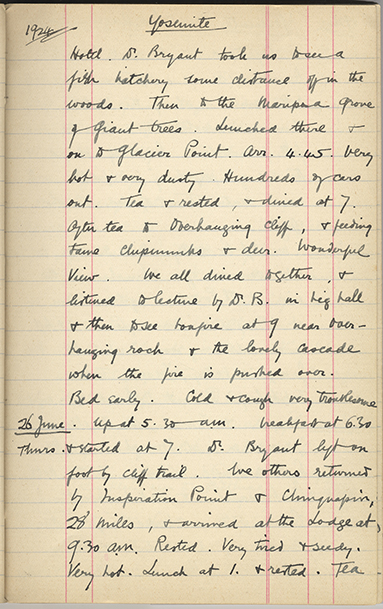 1924
Yosemite
Hotel. Dr. Bryant took us to see a
fish hatchery some distance off in the
woods. Then to the Mariposa grove
of Giant trees. Lunched there &
on to Glacier Point. Arr. 4.45. Very
hot & very dusty. Hundreds of cars
out. Tea & rested, & dined at 7.
After tea to Overhanging Cliff, & feeding
tame chipmunks & deer. Wonderful
View. We all dined together, &
listened to lecture by Dr. B. in big hall
& then to see bonfire at 9 near over-
hanging rock & the lovely cascade
when the fire is pushed over.
Bed early. Cold & cough very troublesome
26 June. Up at 5.30 am. Breakfast at 6.30
Thurs. & started at 7. Dr. Bryant left on
foot by cliff trail. We others returned
by Insperation Point & Chinquapin,
28 miles, & arrived at the Lodge at
9.30 am. Rested. Very tired & seedy.
Very hot. Lunch at 1. & rested. Tea